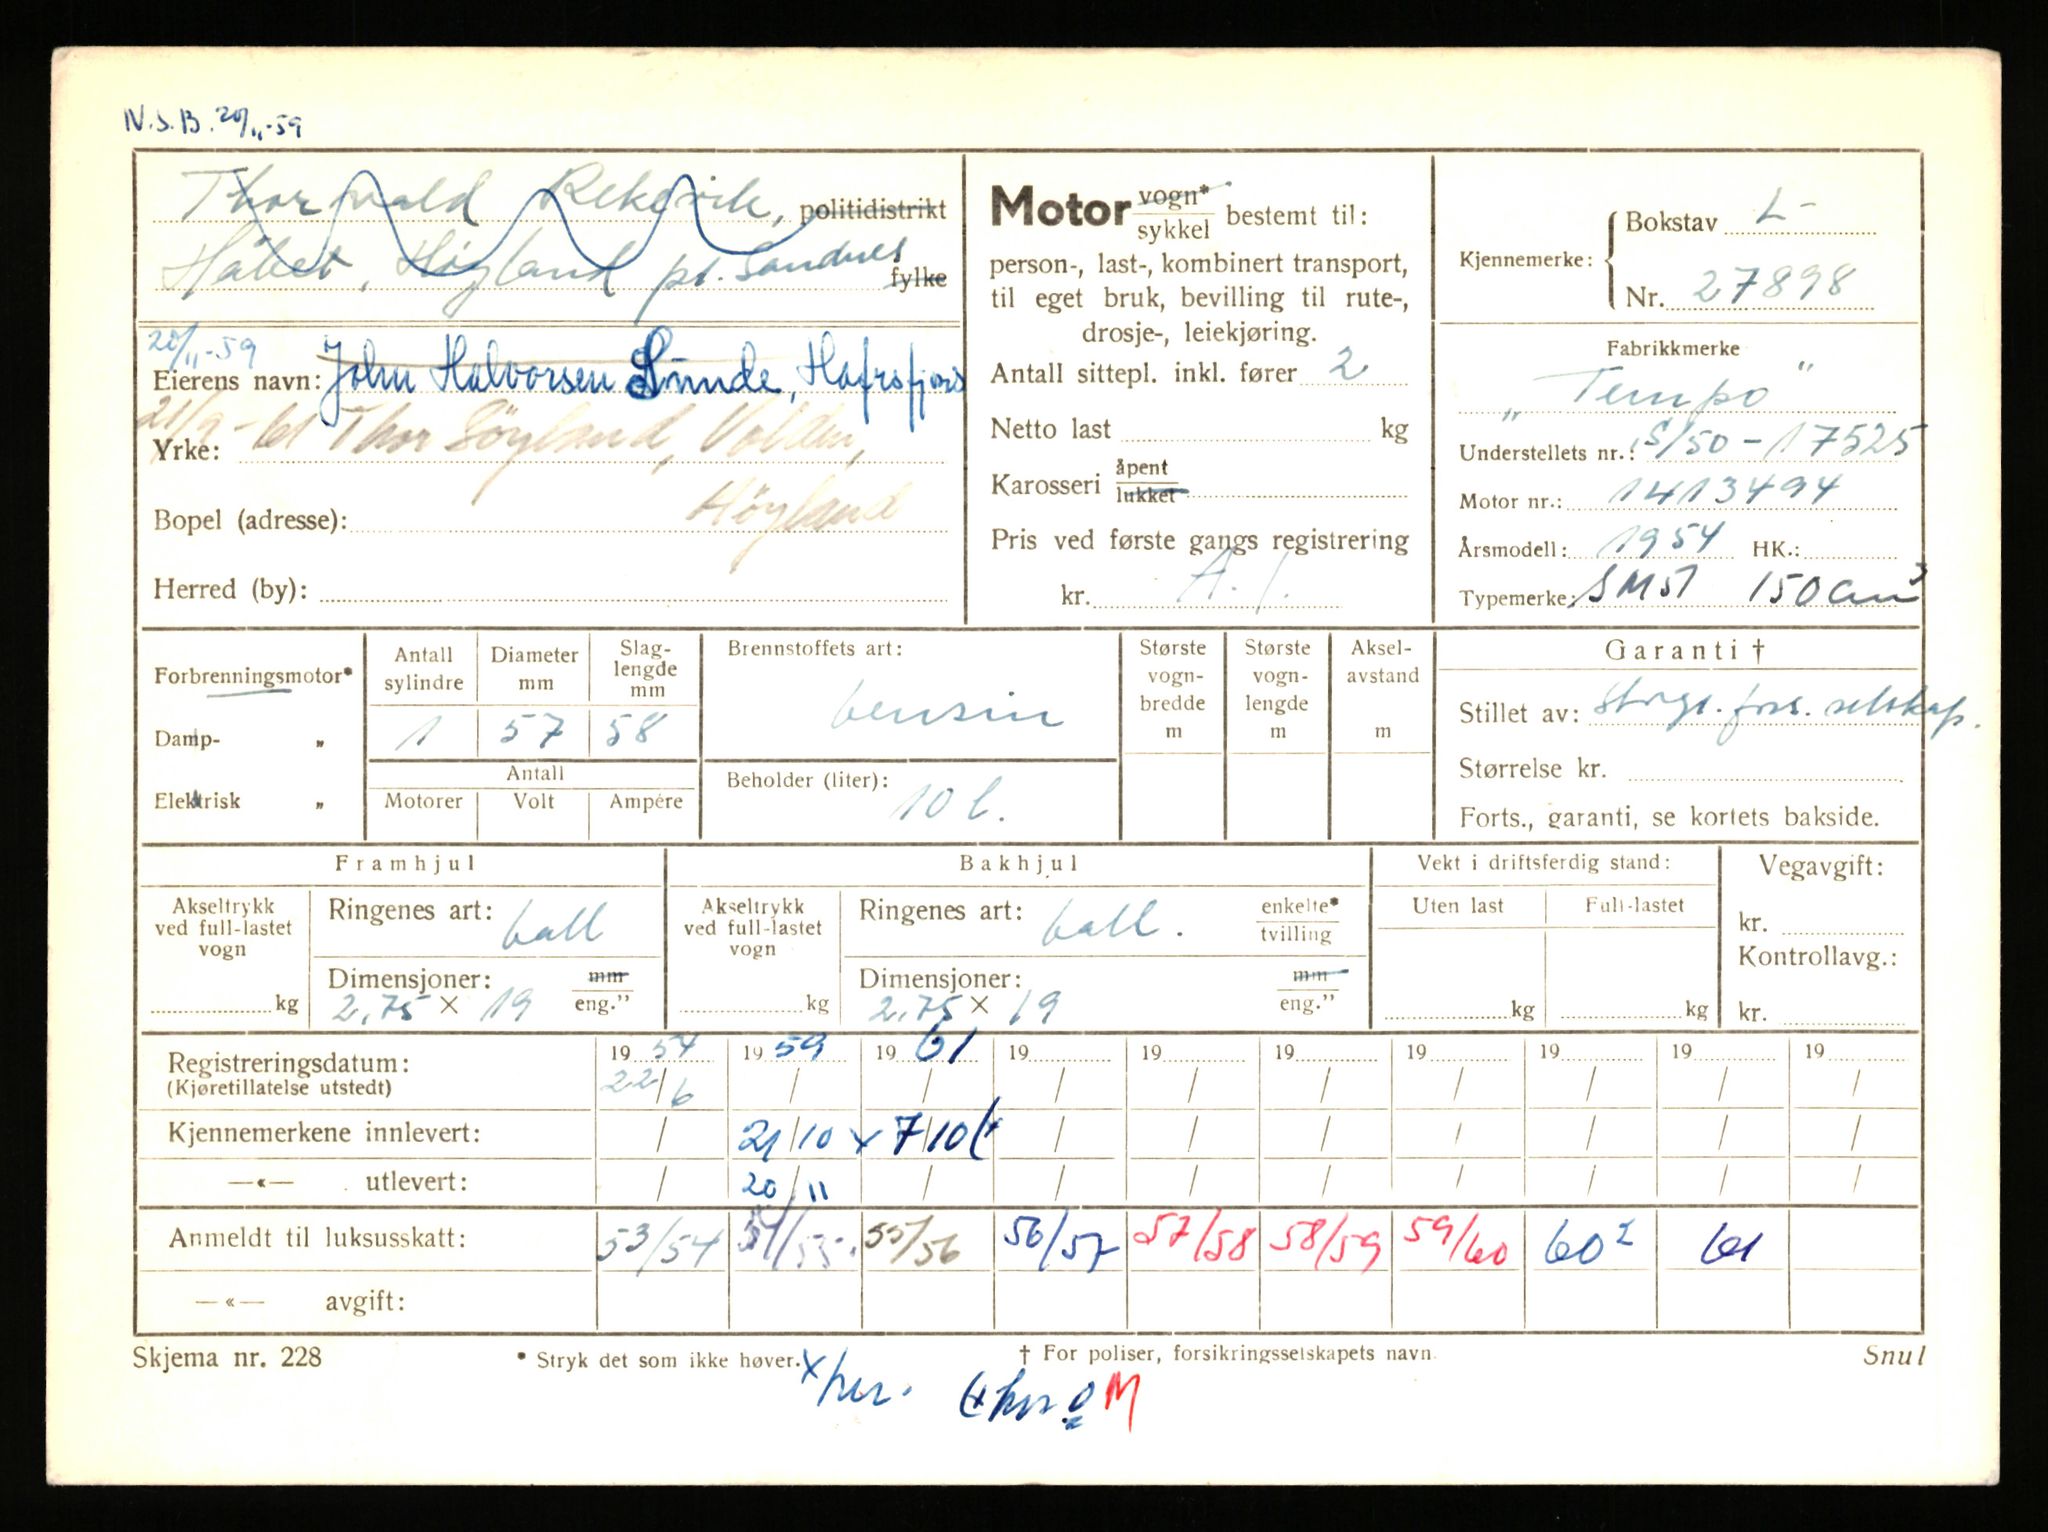 N.S.B. 20/11-59
Thorvald Rekevik, politidistrikt
Håbet, Høyland pr. Sandnes fylke
20/11-59
Eierens navn: John Halvorsen Sunde, Hafrsfjord
21/9-61 Thor Söyland, Volden,
Yrke:
Bopel (adresse): Höyland
Herred (by):
Motor vogn* sykkel bestemt til:
person-, last-, kombinert transport,
til eget bruk, bevilling til rute-,
drosje-, leiekjøring.
Antall sittepl. inkl. fører 2
Netto last kg
Karosseri åpent lukket
Pris ved første gangs registrering
kr. A. /.
Kjennemerke: Bokstav L-
Nr. 27898
Fabrikkmerke
„Tempo”
Understellets nr.: S/50-17525
Motor nr.: 1413494
Årsmodell: 1954 HK.:
Typemerke: SM51 150 cm3
Forbrenningsmotor*
Damp- „
Elektrisk „
Antall sylindre
Diameter mm
Slag- lengde mm
1 57 58
Antall
Motorer Volt Ampére
Brennstoffets art:
bensin
Beholder (liter):
10 l.
Største vogn- bredde m
Største vogn- lengde m
Aksel- avstand m
Garanti †
Stillet av: fors. selskap.
Størrelse kr.
Forts., garanti, se kortets bakside.
Framhjul
Akseltrykk ved full-lastet vogn
kg
Ringenes art: ball
Dimensjoner: mm
2,75 × 19 eng.”
Bakhjul
Akseltrykk ved full-lastet vogn
kg
Ringenes art: ball. enkelte* tvilling
Dimensjoner: mm
2,75 × 19 eng.”
Vekt i driftsferdig stand:
Uten last Full-lastet
kg kg
Vegavgift:
kr.
Kontrollavg.:
kr.
Registreringsdatum: 19 54 19 59 19 61 19 19 19 19 19 19 19
(Kjøretillatelse utstedt) 22/6 / / / / / / / / /
Kjennemerkene innlevert: / 21/10 x 7/10 (x / / / / / / /
—«— utlevert: / 20/11 / / / / / / / /
Anmeldt til luksusskatt: 53/54 54/55. 55/56 56/57 57/58 58/59 59/60 60² 61
—«— avgift:
Skjema nr. 228 * Stryk det som ikke høver. † For poliser, forsikringsselskapets navn. Snul
x her. (x her. M